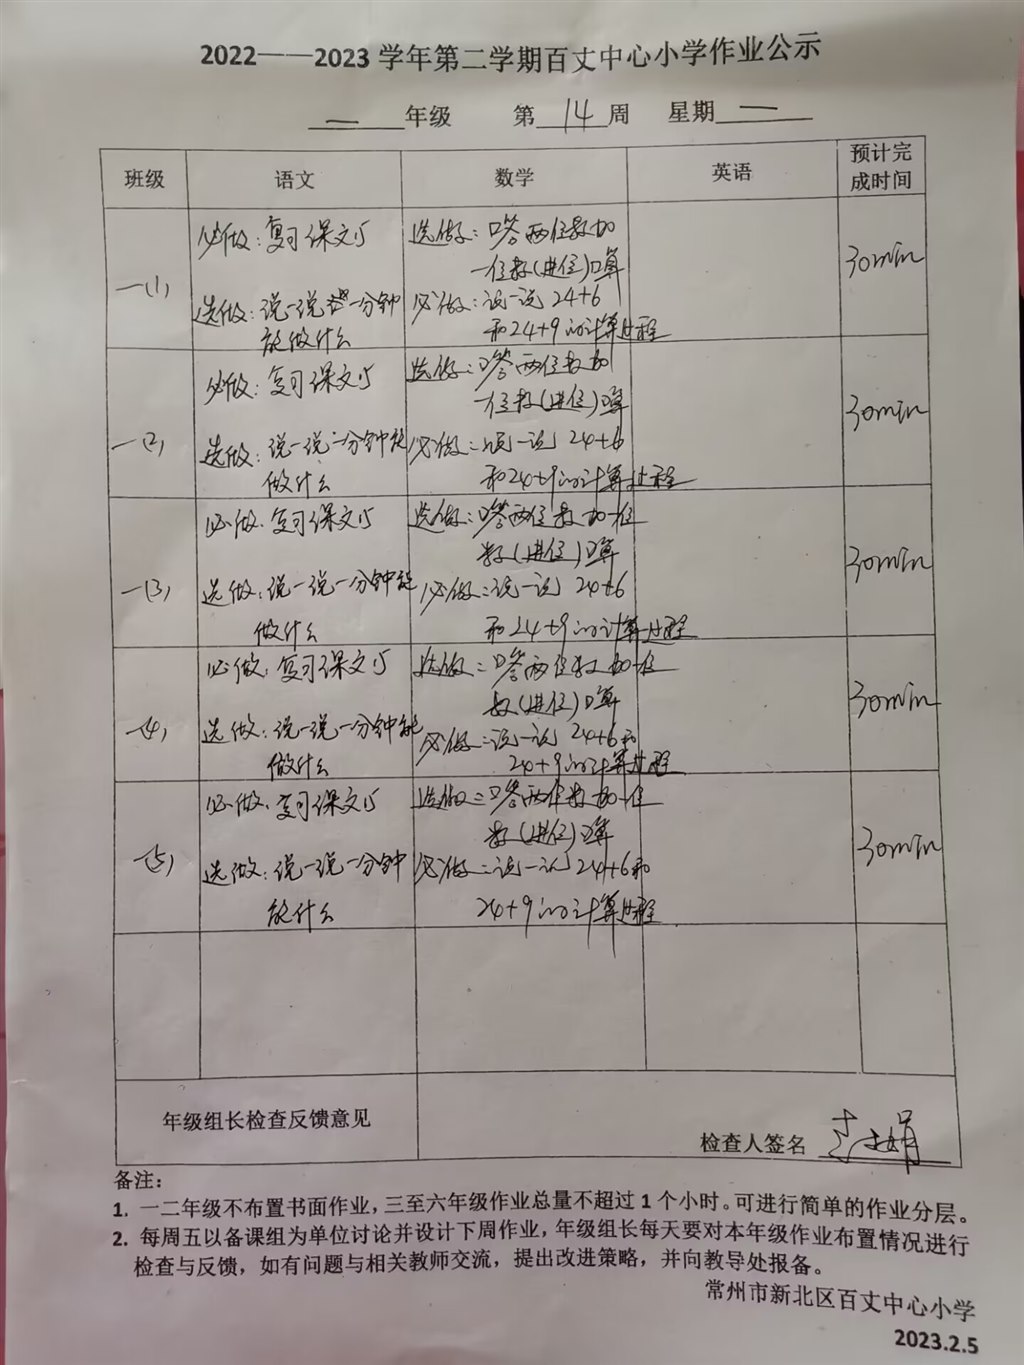 2022——2023 学年第二学期百丈中心小学作业公示
一 年级 第 14 周 星期 二
班级 语文 数学 英语 预计完成时间
一(1)
必做：复习课文15
选做：说一说一分钟
能做什么
选做：口答两位数加
一位数(进位)口算
必做：说一说 24+6
和24+9的计算过程
30min
一(2)
必做：复习课文15
选做：说一说一分钟能
做什么
选做：口答两位数加
一位数(进位)口算
必做：说一说 24+6
和24+9的计算过程
30min
一(3)
必做：复习课文15
选做：说一说一分钟能
做什么
选做：口答两位数加一位
数(进位)口算
必做：说一说 24+6
和24+9的计算过程
30min
一(4)
必做：复习课文15
选做：说一说一分钟能
做什么
选做：口答两位数加一位
数(进位)口算
必做：说一说 24+6和
24+9的计算过程
30min
一(5)
必做：复习课文15
选做：说一说一分钟
能什么
选做：口答两位数加一位
数(进位)口算
必做：说一说 24+6和
24+9的计算过程
30min
年级组长检查反馈意见
检查人签名
备注：
1. 一二年级不布置书面作业，三至六年级作业总量不超过 1 个小时。可进行简单的作业分层。
2. 每周五以备课组为单位讨论并设计下周作业，年级组长每天要对本年级作业布置情况进行
检查与反馈，如有问题与相关教师交流，提出改进策略，并向教导处报备。
常州市新北区百丈中心小学
2023.2.5